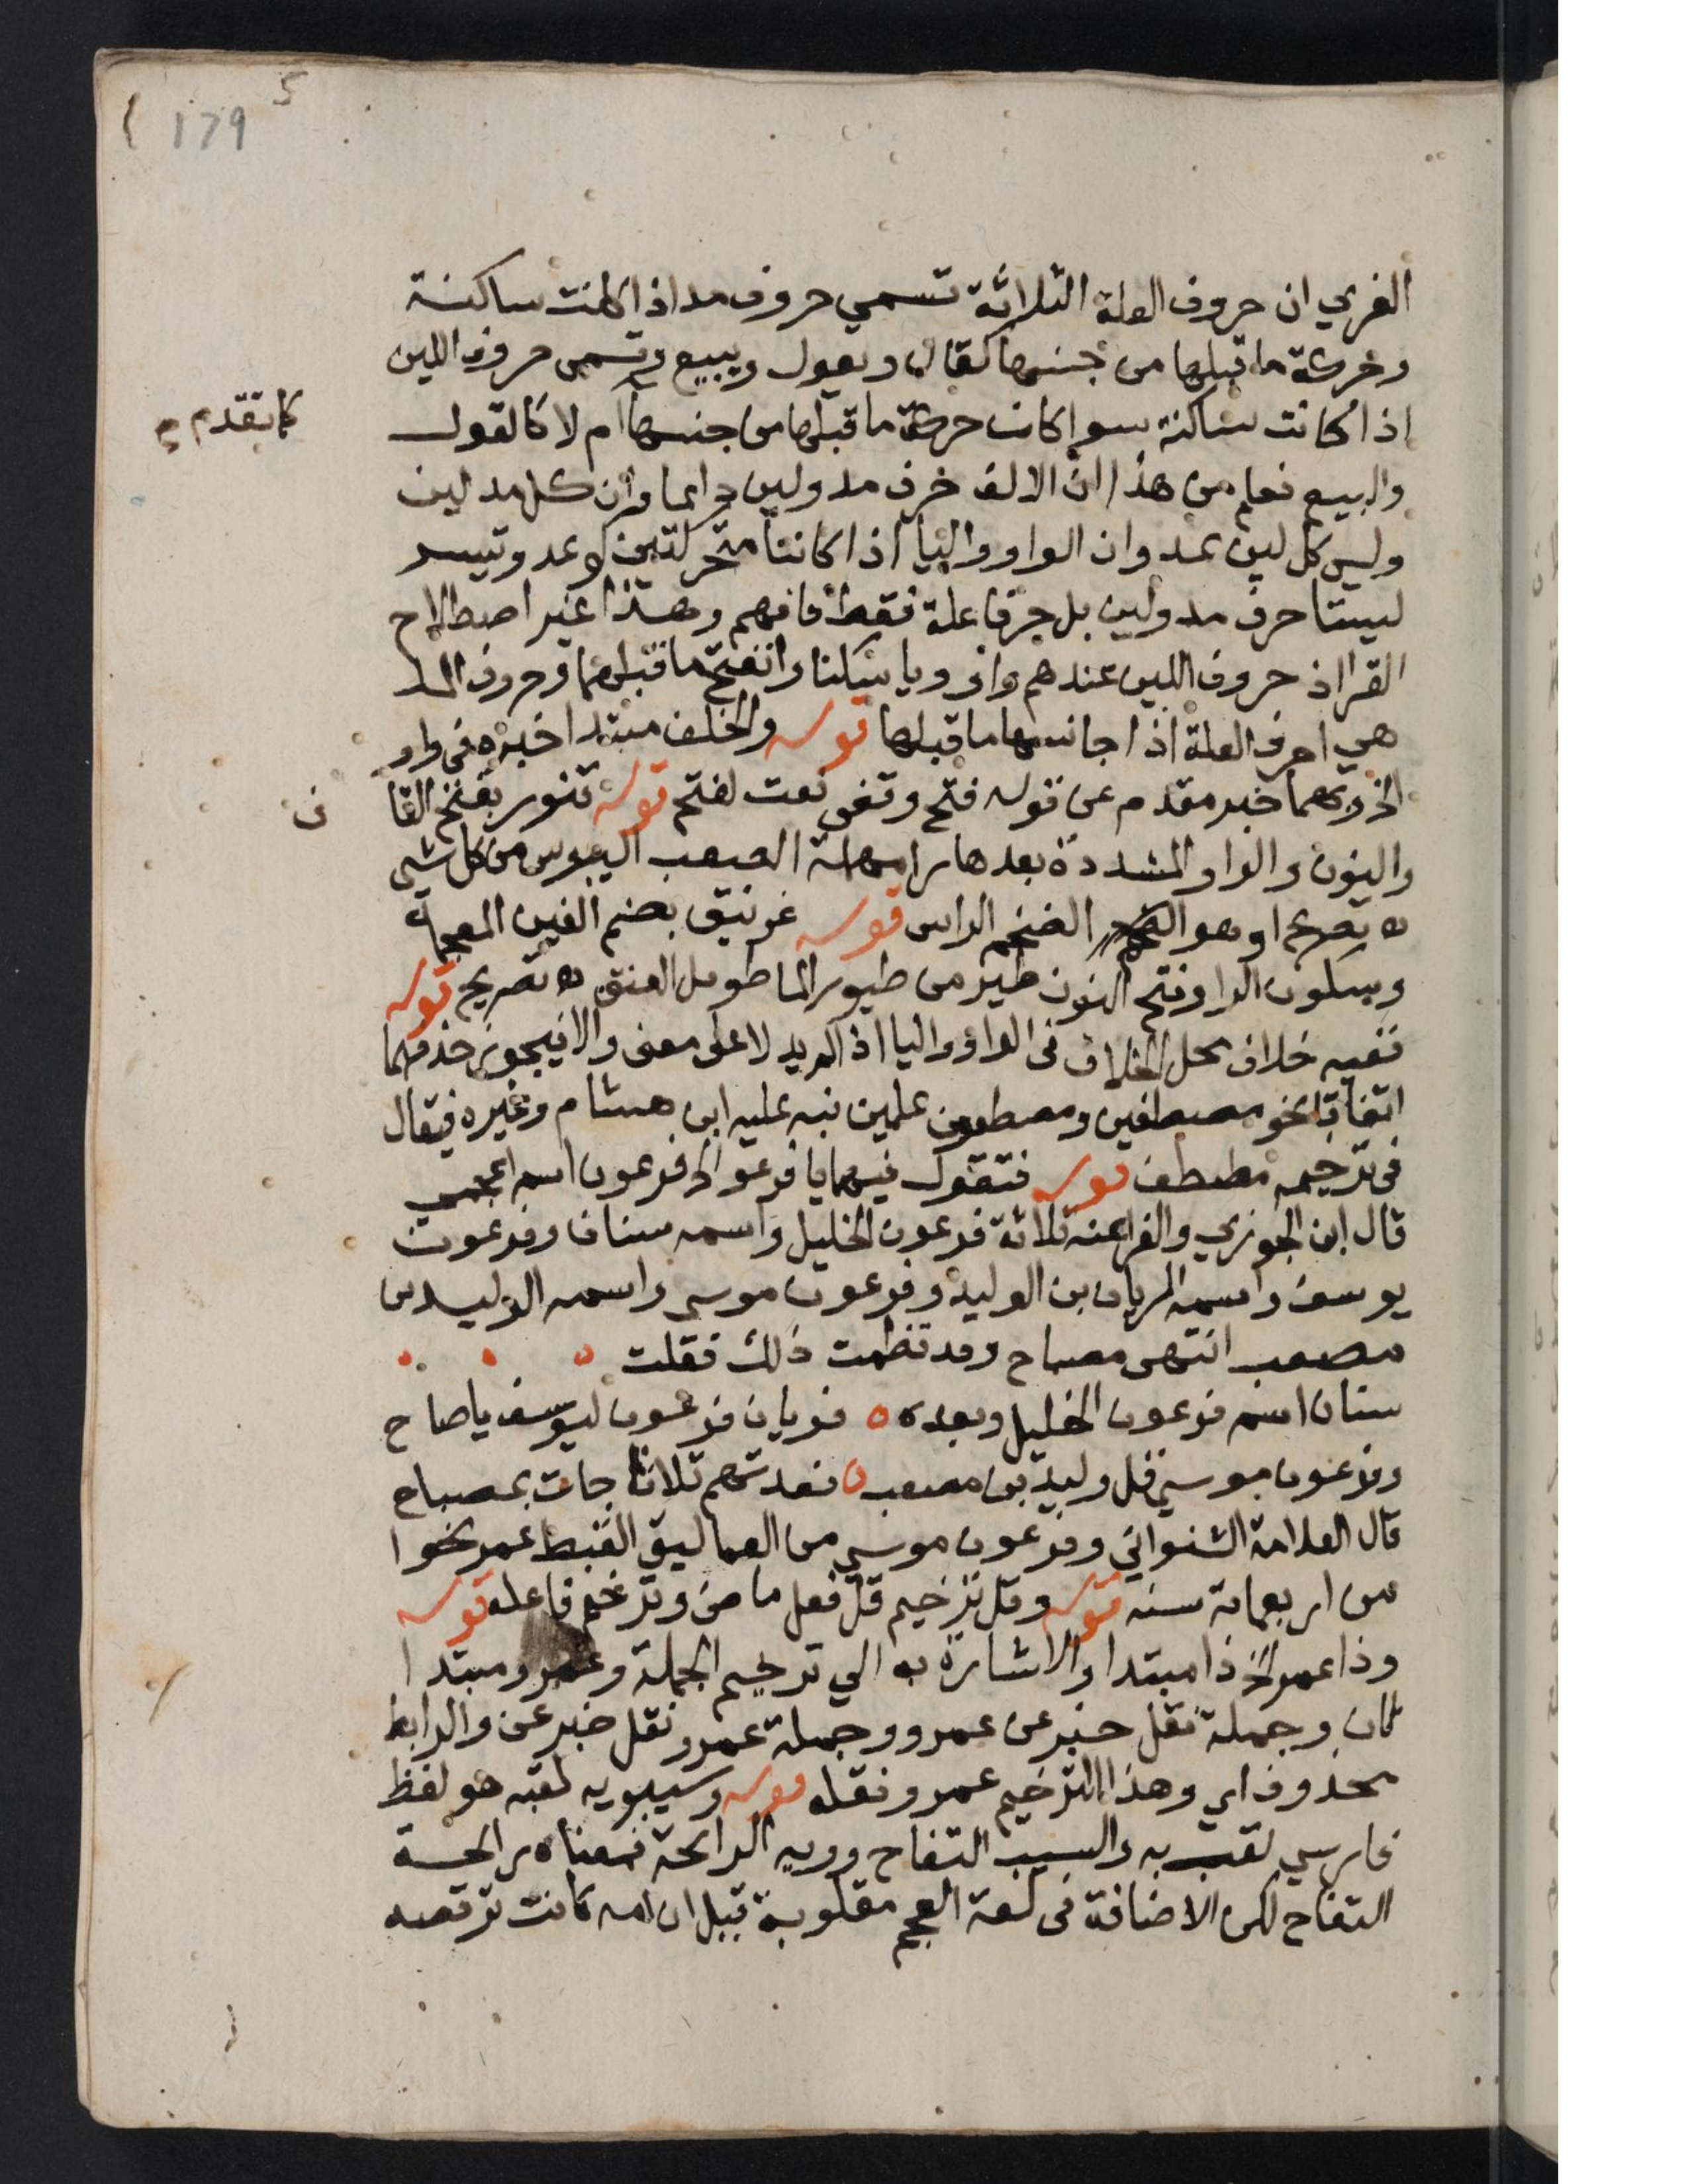 179
5
الغزي ان حروف العلة الثلاثة تسمي حروف مد اذا كانت ساكنة
وحركة ما قبلها من جنسها كقال ويقول ويبيع وتسمى حروف اللين
اذا كانت ساكنة سوا كانت حركة ما قبلها من جنسها ام لا كالقول
كما تقدم
والبيع فعلم من هذا ان الالف حرف مد ولين دايما وان كل مد لين
وليس كل لين بمد وان الواو واليا اذا كانتا متحركتين كوعد وتيسر
ليستا حرف مد ولين بل حرفا علة فقط فافهم وهذا غير اصطلاح
القرا اذ حروف اللين عندهم واو ويا سكنا وانفتح ما قبلهما وحروف المد
هي احرف العلة اذا جانسها ما قبلها قوله والخلف مبتدا خبره في واو
الخ وبهما خبر مقدم عن قوله فتح وقفي نعت لفتح قوله قنور بفتح القا
ف
والنون والواو المشددة بعدها را مهملة الصعب اليبوس من كل شي
اه تصريح او هو الضخم الراس قوله غرنيق بضم الغين المعجمة
وسكون الرا وفتح النون طير من طيور الما طويل العنق اه تصريح قوله
ففيه خلاف محل الخلاف في الواو واليا اذا لم يدلا على معنى والا فيجوز حذفهما
اتفاقا نحو مصطفين ومصطفون علمين نبه عليه ابن هشام وغيره فيقال
في ترخيمه مصطف قوله فتقول فيهما يا فرعو الخ فرعون اسم اعجمي
قال ابن الجوزي والفراعنه ثلاثة فرعون الخليل واسمه سنان وفرعون
يوسف واسمه الريان بن الوليد وفرعون موسي واسمه الوليد بن
مصعب انتهى مصباح وقد نظمت ذلك فقلت
سنان اسم فرعون الخليل وبعده ه فريان فرعون ليوسف يا صاح
وفرعون موسي قل وليد بن مصعب ه فعدتهم ثلاثا جات بمصباح
قال العلامة الشنواني وفرعون موسي من العماليق القبط عمر نحوا
من اربعماية سنه قوله وقل ترخيم قل فعل ماض وترخيم فاعله قوله
وذا عمرو الخ ذا مبتدا والاشارة به الي ترخيم الجملة وعمرو مبتدا
ثان وجملة نقل خبر عن عمرو وجملة عمرو نقل خبر عن والرابط
محذوف اي وهذا الترخيم عمرو نقله قوله وسيبويه لقبه هو لفظ
فارسي لقب به والسيب التفاح وويه الرائحة فمعناه رائحة
التفاح لكن الاضافة في لغة العجم مقلوبة قيل ان امه كانت ترقصه